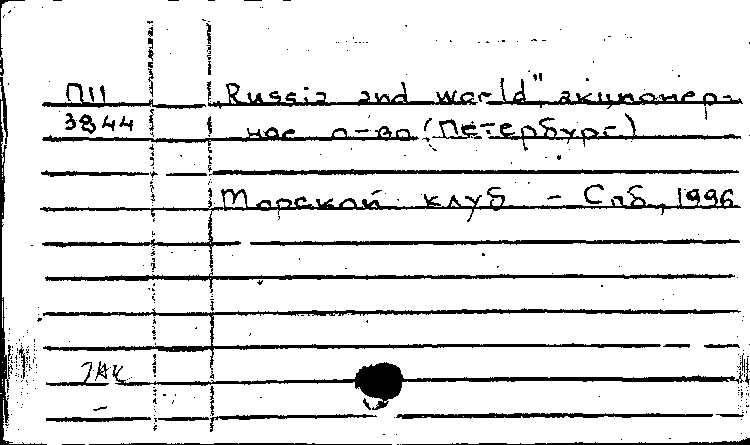 П11 „Russia and world", акционер-
3844 ное о-во (Петербург)
Морской клуб - Спб, 1996
ЗАК